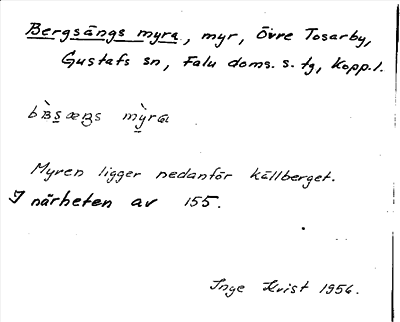 Bergsängs myra, myr, Övre Tosarby,
Gustafs sn, Falu doms. s. tg, Kopp. l.
myra
Myren ligger nedanför källberget.
I närheten av 155.
Inge Kvist 1956.